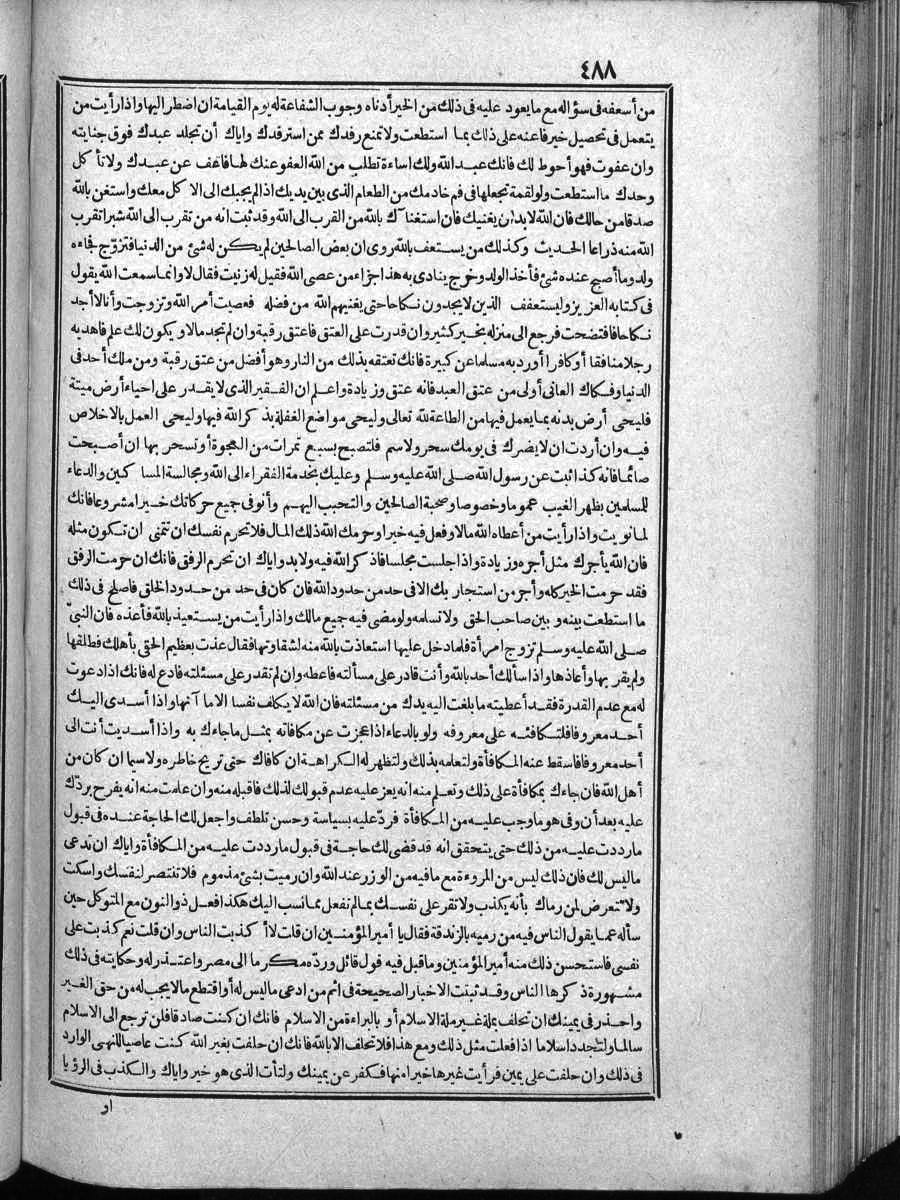 ٤٨٨
من أسعفه فى سؤاله مع ما يعود عليه فى ذلك من الخير أدناه وجوب الشفاعة له يوم القيامة ان اضطر اليها واذا رأيت من
يتعمل فى تحصيل خير فاعنه على ذلك بما استطعت ولا تمنع رفدك ممن استرفدك واياك أن تجلد عبدك فوق جنايته
وان عفوت فهو أحوط لك فانك عبد الله ولك اساءة تطلب من الله العفو عنك لها فاعف عن عبدك ولا تأكل
وحدك ما استطعت ولو لقمة تجعلها فى فم خادمك من الطعام الذى بين يديك اذا لم يجبك الى الاكل معك واستغن بالله
صدقا من حالك فان الله لا بد ان يغنيك فان استغناءك بالله من القرب الى الله وقد ثبت انه من تقرب الى الله شبرا تقرب
الله منه ذراعا الحديث وكذلك من يستعفف بالله روى ان بعض الصالحين لم يكن له شئ من الدنيا فتزوّج فجاءه
ولد وما أصبح عنده شئ فأخذ الولد وخرج ينادى به هذا جزاء من عصى الله فقيل له زنيت فقال لا وانما سمعت الله يقول
فى كتابه العزيز وليستعفف الذين لا يجدون نكاحا حتى يغنيهم الله من فضله فعصيت أمر الله وتزوجت وأنا لا أجد
نكاحا فافتضحت فرجع الى منزله بخير كثير وان قدرت على العتق فاعتق رقبة وان لم تجد مالا ويكون لك علم فاهد به
رجلا منافقا أو كافرا أورد به مسلما عن كبيرة فانك تعتقه بذلك من النار وهو أفضل من عتق رقبة ومن ملك أحد فى
الدنيا وفكاك العانى أولى من عتق العبد فانه عتق وزيادة واعلم ان الفقير الذى لا يقدر على احياء أرض ميتة
فليحى أرض بدنه بما يعمل فيها من الطاعة لله تعالى وليحى مواضع الغفلة بذكر الله فيها وليحى العمل بالاخلاص
فيه وان أردت ان لا يضرك فى يومك سحر ولا سم فلتصبح بسبع تمرات من العجوة أو تسحر بها ان أصبحت
صائما فانه كذا ثبت عن رسول الله صلى الله عليه وسلم وعليك بخدمة الفقراء الى الله ومجالسة المساكين والدعاء
للمسلمين بظهر الغيب عموما وخصوصا وصحبة الصالحين والتحبب اليهم وأنو فى جميع حركاتك خيرا مشروعا فانك
لما نويت واذا رأيت من أعطاه الله مالا وفعل فيه خيرا وحرمك الله ذلك المال فلا تحرم نفسك ان تتمنى ان تكون مثله
فان الله يأجرك مثل أجره وزيادة واذا جلست مجلسا فاذكر الله فيه ولا بد واياك ان تحرم الرفق فانك ان حرمت الرفق
فقد حرمت الخير كله وأجر من استجار بك الا فى حد من حدود الله فان كان فى حد من حدود الخلق فاصلح فى ذلك
ما استطعت بينه وبين صاحب الحق ولا تسلمه ولو مضى فيه جميع مالك واذا رأيت من يستعيذ بالله فأعذه فان النبىّ
صلى الله عليه وسلم تزوج امرأة فلما دخل عليها استعاذت بالله منه لشقاوتها فقال عذت بعظيم الحقى بأهلك فطلقها
ولم يقربها وأعاذها واذا سألك أحد بالله وأنت قادر على مسألته فاعطه وان لم تقدر على مسئلته فادع له فانك اذا دعوت
له مع عدم القدرة فقد أعطيته ما بلغت اليه يدك من مسئلته فان الله لا يكلف نفسا الا ما آتاها واذا أسدى اليك
أحد معروفا فلتكافئه على معروفه ولو بالدعاء اذا عجزت عن مكافاته بمثل ما جاءك به واذا أسديت أنت الى
أحد معروفا فاسقط عنه المكافأة ولتعلمه بذلك ولتظهر له الكراهة ان كافاك حتى تريح خاطره ولا سيما ان كان من
أهل الله فان جاءك بمكافأة على ذلك وتعلم منه انه يعز عليه عدم قبولك لذلك فاقبله منه وان علمت منه انه يفرح بردّك
عليه بعد أن وفى هو ما وجب عليه من المكافأة فردّ عليه بسياسة وحسن تلطف واجعل لك الحاجة عنده فى قبول
ما رددت عليه من ذلك حتى يتحقق انه قد قضى لك حاجة فى قبول ما رددت عليه من المكافأة واياك ان تدعى
ما ليس لك فان ذلك ليس من المروءة مع ما فيه من الوزر عند الله وان رميت بشئ مذموم فلا تنتصر لنفسك واسكت
ولا تتعرض لمن رماك بأنه يكذب ولا تقر على نفسك بما لم تفعل مما نسب اليك هكذا فعل ذو النون مع المتوكل حين
سأله عما يقول الناس فيه من رميه بالزندقة فقال يا أمير المؤمنين ان قلت لا أكذبت الناس وان قلت نعم كذبت على
نفسى فاستحسن ذلك منه أمير المؤمنين وما قبل فيه قول قائل وردّه مكرما الى مصر واعتذر له وحكايته فى ذلك
مشهورة ذكرها الناس وقد ثبتت الاخبار الصحيحة فى اثم من ادعى ما ليس له أو اقتطع ما لا يجب له من حق الغير
واحذر فى يمينك ان تحلف بملة غير ملة الاسلام أو بالبراءة من الاسلام فانك ان كنت صادقا فلن ترجع الى الاسلام
سالما ولتجدد اسلاما اذا فعلت مثل ذلك ومع هذا فلا تحلف الا بالله فانك ان حلفت بغير الله كنت عاصيا للنهى الوارد
فى ذلك وان حلفت على يمين فرأيت غيرها خيرا منها فكفر عن يمينك ولتأت الذى هو خير واياك والكذب فى الرؤيا
او